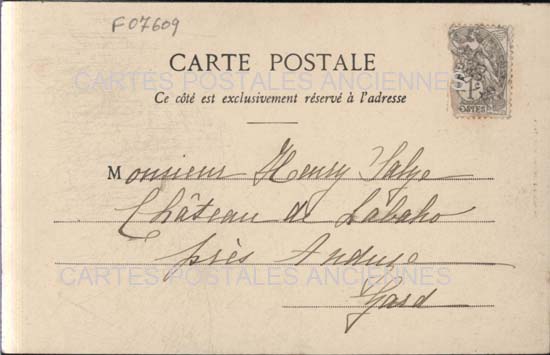 F07609
CARTE POSTALE
CARTES POSTALES ANCIENNES
Ce côté est exclusivement réservé à l'adresse
Monsieur Henry
Château de Labaho
près Anduze
CARTES POSTALES ANCIENNES
Gard
1c
POSTES